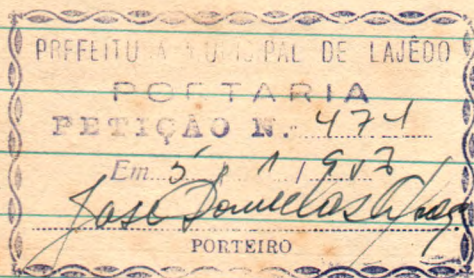 PREFEITURA MUNICIPAL DE LAJÊDO
PORTARIA
PETIÇÃO N. 471
Em 5 / 1 / 967
José
PORTEIRO